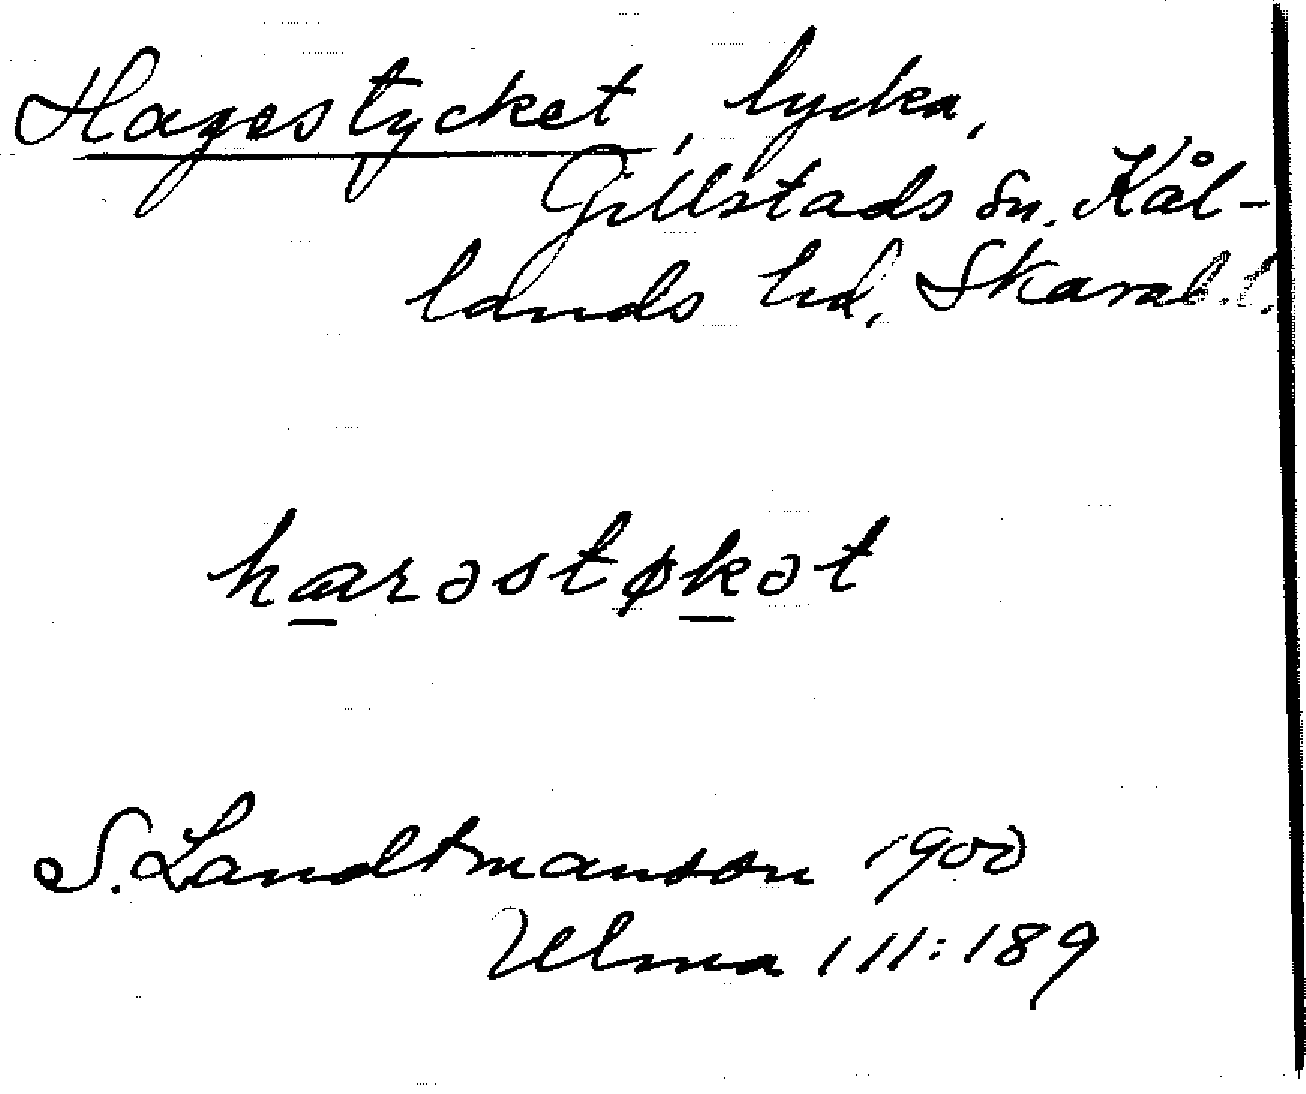 Hagestycket, lycka,
Gillstads sn. Kål-
lands hd, Skarab. l.
harəstøkət
S. Landtmanson 1900
Ulma 111:189